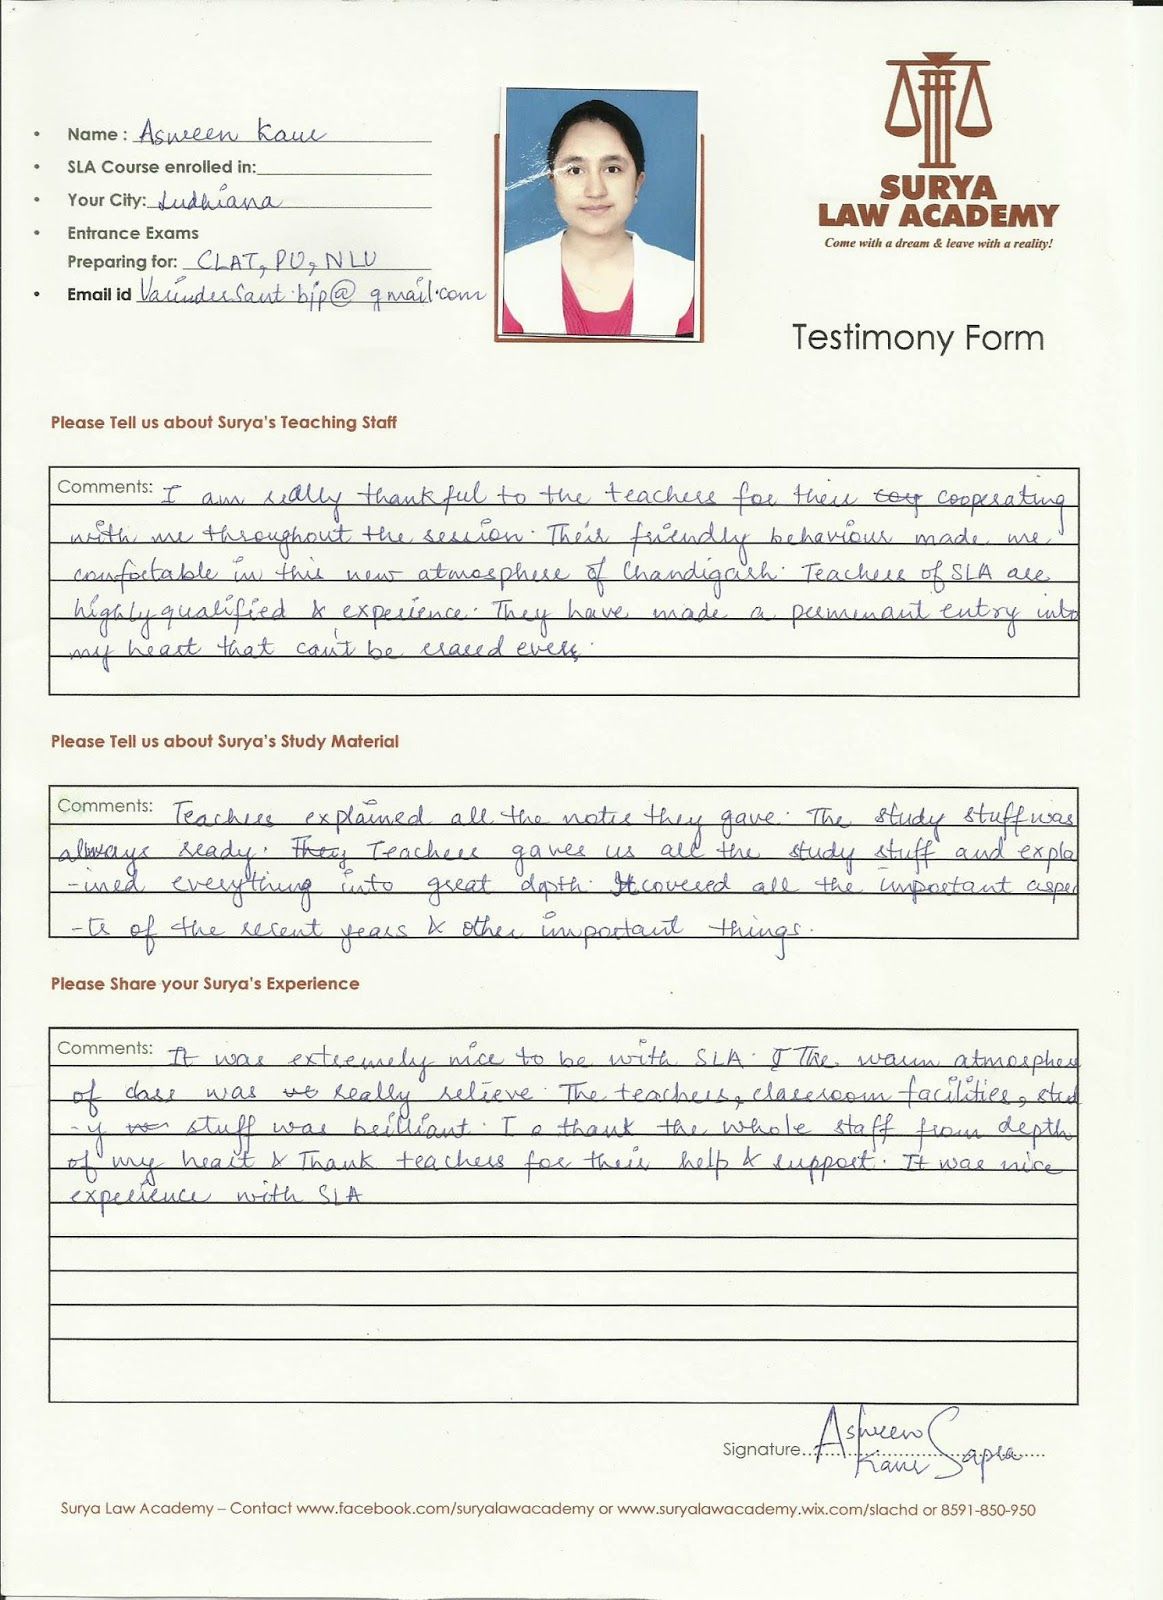 SURYA
LAW ACADEMY
Come with a dream & leave with a reality!
Testimony Form
• Name : Asheen Kaur
• SLA Course enrolled in:
• Your City: Ludhiana
• Entrance Exams
Preparing for: CLAT, PU, NLU
• Email id VarinderSant.bjp@gmail.com
Please Tell us about Surya's Teaching Staff
Comments: I am really thankful to the teachers for their cooperating
with me throughout the session. Their friendly behaviour made me
comfortable in this new atmosphere of Chandigarh. Teachers of SLA are
highly qualified & experience. They have made a permenant entry into
my heart that can't be erased ever.
Please Tell us about Surya's Study Material
Comments: Teachers explained all the notes they gave. The study stuff was
always ready. They Teachers gaves us all the study stuff and expla
-ined everything into great depth. It covered all the important aspec
-ts of the recent years & other important things.
Please Share your Surya's Experience
Comments: It was extremely nice to be with SLA. The warm atmosphere
of class was really relieve. The teachers, classroom facilities, stud
-y stuff was brilliant. I thank the whole staff from depth
of my heart & Thank teachers for their help & support. It was nice
experience with SLA
Signature Asheen
Kaur Sapra
Surya Law Academy – Contact www.facebook.com/suryalawacademy or www.suryalawacademy.wix.com/slachd or 8591-850-950